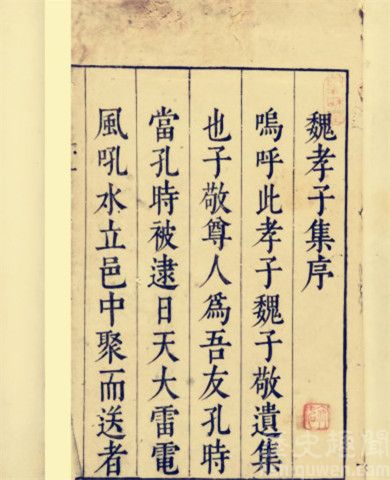 魏孝子集序
嗚呼此孝子魏子敬遺集
也子敬尊人為吾友孔時
當孔時被逮日天大雷電
風吼水立邑中聚而送者
歷史趣聞